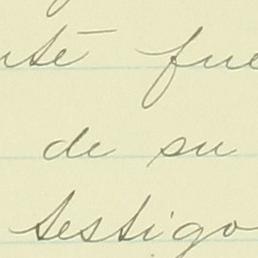 fue
de su
testigo